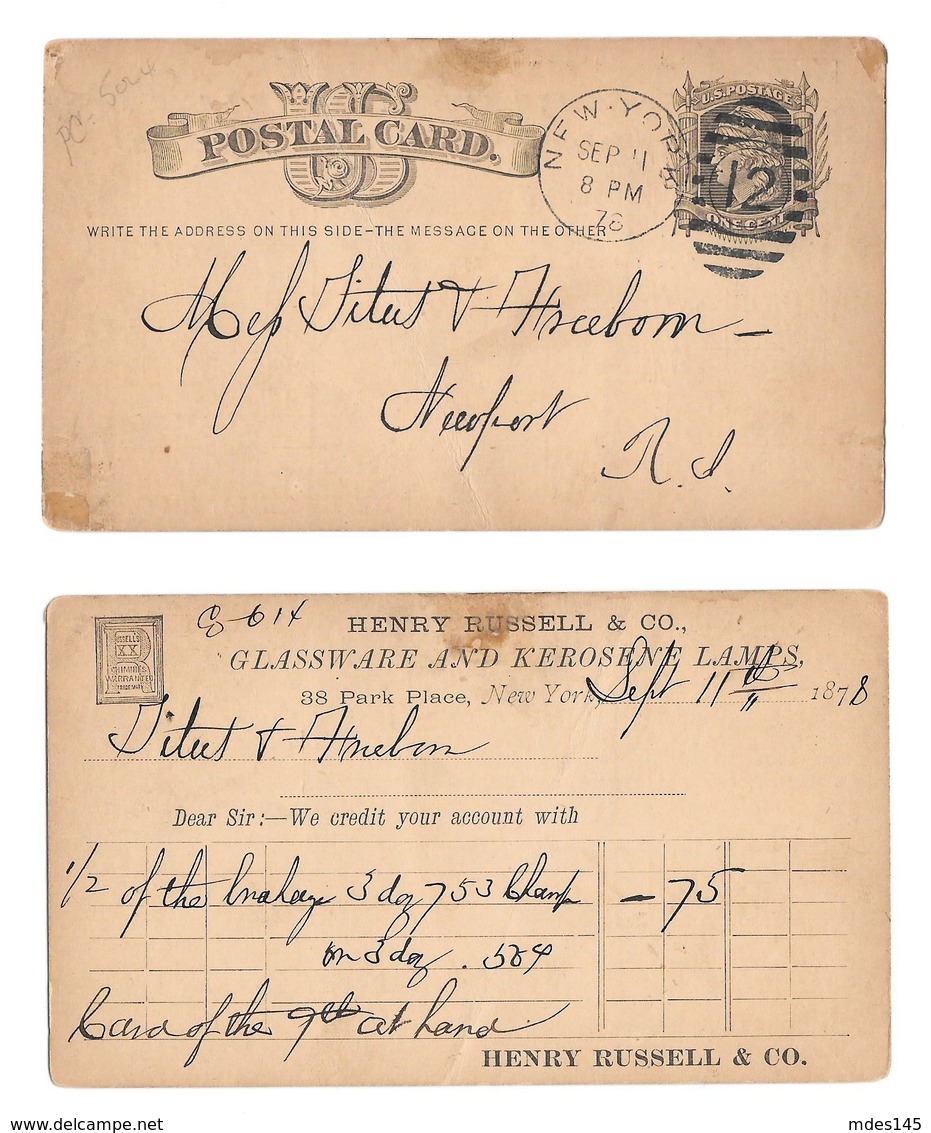 PC. 5024
US
POSTAL CARD.
NEW·YORK
SEP 11
8 PM
78
U.S. POSTAGE
12
ONE CENT
WRITE THE ADDRESS ON THIS SIDE-THE MESSAGE ON THE OTHER
Mess Titus & Freeborn —
Newport
R. I.
RUSSELL'S
XX
R
CHIMNIES
WARRANTED
TRADE MARK
614
HENRY RUSSELL & CO.,
GLASSWARE AND KEROSENE LAMPS,
38 Park Place, New York, Sept 11th 1878
Titus & Freeborn
Dear Sir:—We credit your account with
1/2 of the breakage 3 doz 753 — 75
on 3 doz. 584
Card of the 9th at hand
HENRY RUSSELL & CO.
delcampe.net
mdes145